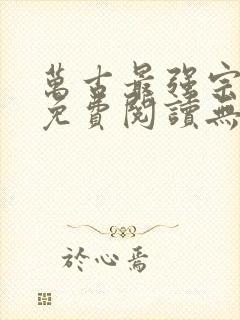 萬古最強宗
免費閱讀無
於心焉